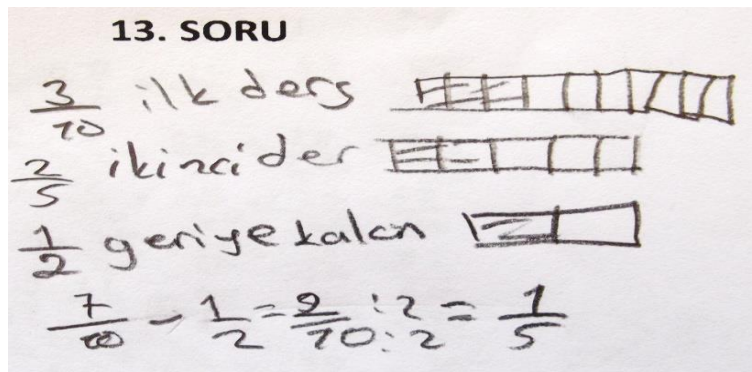 13. SORU
3/10 ilk ders
2/5 ikinci der
1/2 geriye kalan
7/10 - 1/2 = 2/10 :2/:2 = 1/5